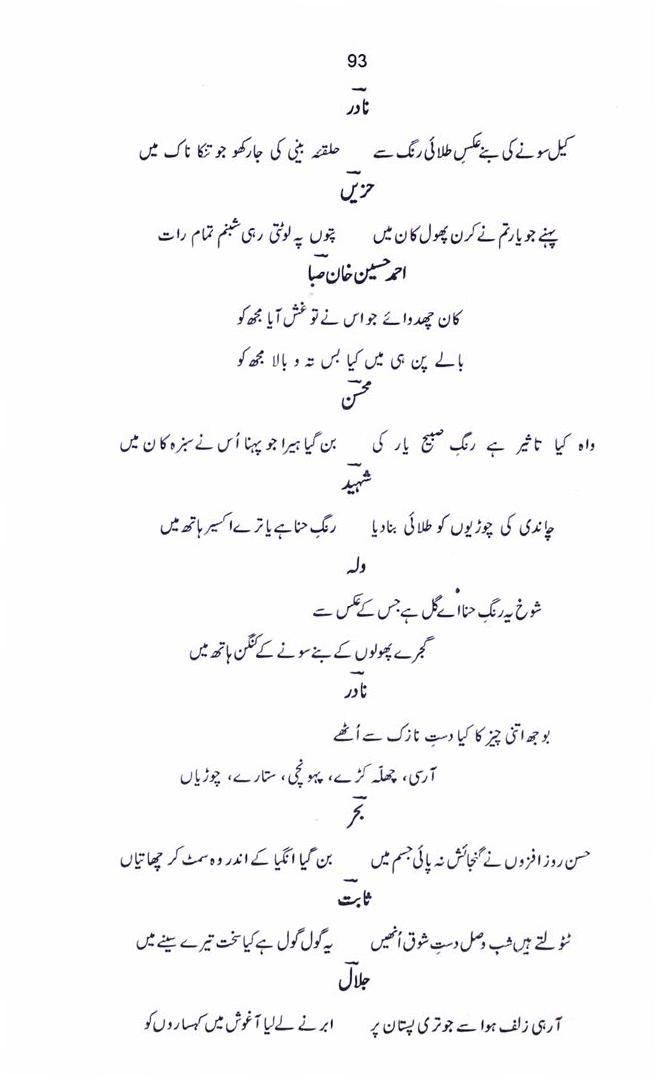 93
نادر
کیل سونے کی بنے عکسِ طلائی رنگ سے حلقۂ بینی کی جا رکھو جو تنکا ناک میں
حزیں
پہنے جو یار تم نے کرن پھول کان میں پتوں پہ لوٹتی رہی شبنم تمام رات
احمد حسین خان صبا
کان چھدوائے جو اس نے تو غش آیا مجھ کو
بالے پن ہی میں کیا بس تہ و بالا مجھ کو
محسن
واہ کیا تاثیر ہے رنگِ صبیح یار کی بن گیا ہیرا جو پہنا اُس نے سبزہ کان میں
شہید
چاندی کی چوڑیوں کو طلائی بنا دیا رنگِ حنا ہے یا ترے اکسیر ہاتھ میں
ولہ
شوخ یہ رنگِ حنا اے گل ہے جس کے عکس سے
گجرے پھولوں کے بنے سونے کے کنگن ہاتھ میں
نادر
بوجھ اتنی چیز کا کیا دستِ نازک سے اُٹھے
آرسی، چھلّہ کڑے، پہونچی، ستارے، چوڑیاں
بحر
حسن روز افزوں نے گنجائش نہ پائی جسم میں بن گیا انگیا کے اندر وہ سمٹ کر چھاتیاں
ثابت
ٹٹولتے ہیں شب وصل دستِ شوق اُنھیں یہ گول گول ہے کیا سخت تیرے سینے میں
جلال
آ رہی زلف ہوا سے جو تری پستان پر ابر نے لے لیا آغوش میں کہساروں کو